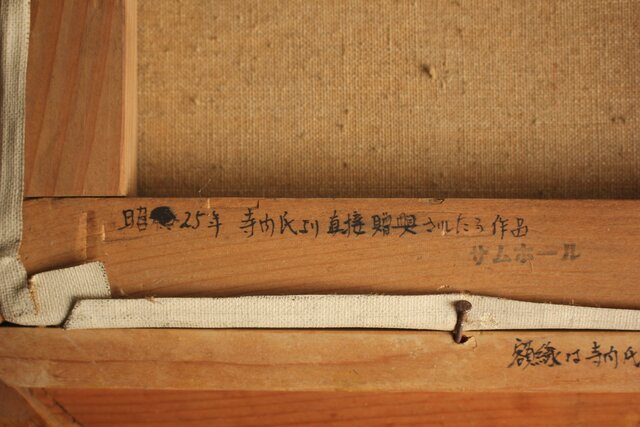 昭 25年 寺内氏より直接贈與されたる作品
サムホール
額縁は寺内氏